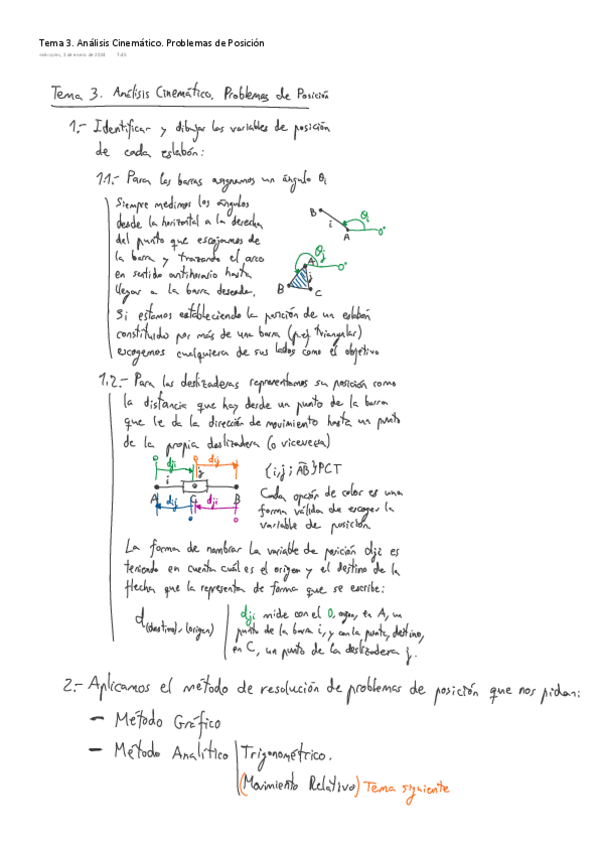 Tema 3. Análisis Cinemático. Problemas de Posición
miércoles, 3 de enero de 2024 7:43
Tema 3. Análisis Cinemático. Problemas de Posición
1.- Identificar y dibujar las variables de posición
de cada eslabón:
1.1.- Para las barras asignamos un ángulo θi
Siempre medimos los ángulos
desde la horizontal a la derecha
del punto que escojamos de
la barra y trazando el arco
en sentido antihorario hasta
llegar a la barra deseada.
B i A θi 0°
θj A j 0° B C
Si estamos estableciendo la posición de un eslabón
constituido por más de una barra (p.ej. triangular)
escogemos cualquiera de sus lados como el objetivo
1.2.- Para las deslizaderas representamos su posición como
la distancia que hay desde un punto de la barra
que le da la dirección de movimiento hasta un punto
de la propia deslizadera (o viceversa)
dji dij
i j
A C B
dij dji
{i,j; AB}PCT
Cada opción de color es una
forma válida de escoger la
variable de posición.
La forma de nombrar la variable de posición dji es
teniendo en cuenta cuál es el origen y el destino de la
flecha que la representa de forma que se escribe:
d(destino),(origen)
dji mide con el 0, origen, en A, un
punto de la barra i, y con la punta, destino,
en C, un punto de la deslizadera j.
2.- Aplicamos el método de resolución de problemas de posición que nos pidan:
- Método Gráfico
- Método Analítico | Trigonométrico.
(Movimiento Relativo) Tema siguiente